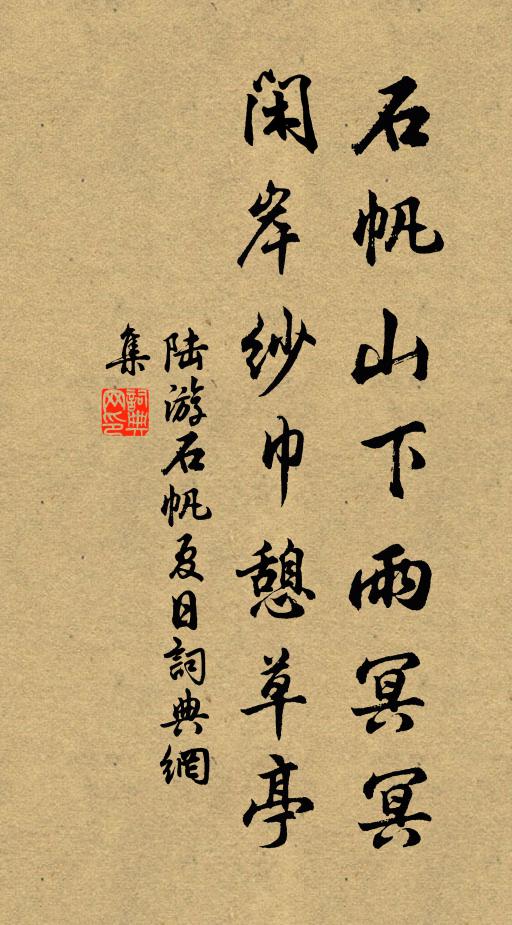 石帆山下雨冥冥
闲岸纱巾憩草亭
陆游石帆夏日詞典網
集
詞典
网印